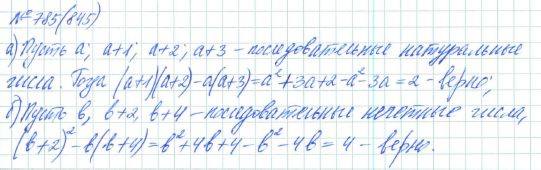 № 785(845)
а) Пусть a; a+1; a+2; a+3 – последовательные натуральные
числа. Тогда (a+1)(a+2)-a(a+3)=a²+3a+2-a²-3a=2 – верно;
б) Пусть b, b+2, b+4 – последовательные нечетные числа,
(b+2)²-b(b+4)=b²+4b+4-b²-4b=4 – верно.